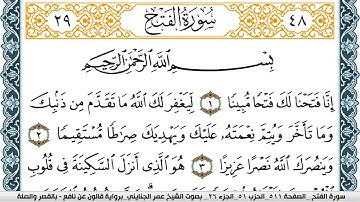 ٤٨ سُورَةُ الْفَتْحِ ٢٩
بِسْمِ اللَّهِ الرَّحْمَٰنِ الرَّحِيمِ
إِنَّا فَتَحْنَا لَكَ فَتْحًا مُّبِينًا ١ لِّيَغْفِرَ لَكَ اللَّهُ مَا تَقَدَّمَ مِن ذَنۢبِكَ
وَمَا تَأَخَّرَ وَيُتِمَّ نِعْمَتَهُۥ عَلَيْكَ وَيَهْدِيَكَ صِرَٰطًا مُّسْتَقِيمًا ٢
وَيَنصُرَكَ اللَّهُ نَصْرًا عَزِيزًا ٣ هُوَ الَّذِي أَنزَلَ السَّكِينَةَ فِي قُلُوبِ
سورة الفتح_ الصفحة ٥١١_ الحزب ٥١_الجزء ٢٦_ بصوت الشيخ عمر الجنايني_ برواية قالون عن نافع - بالقصر والصلة